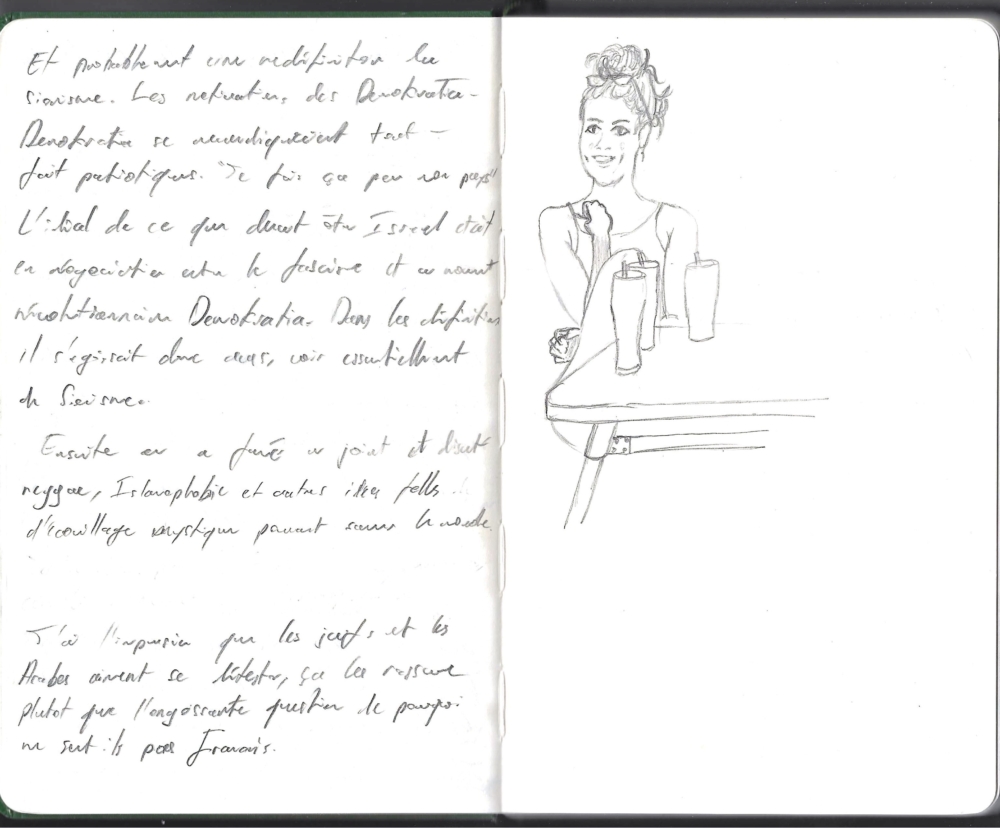 Et probablement une redéfinition du
sionisme. Les motivations des Demokratia-
Demokratia se revendiquaient tout -
fait patriotiques. "Je fais ça pour mon pays"
L'idéal de ce que devait être Israel était
en négociation entre le fascisme et ce mouvement
révolutionnaire Demokratia. Dans les définitions
il s'agissait donc aussi, voir essentiellement
de Sionisme.
Ensuite on a fumé un joint et discuté
reggae, Islamophobie et autres idées folles
d'écouillage mystique pouvant sauver le monde.
J'ai l'impression que les juifs et les
Arabes aiment se détester, ça les rassure
plutot que l'angoissante question de pourquoi
ne sont ils pas Français.